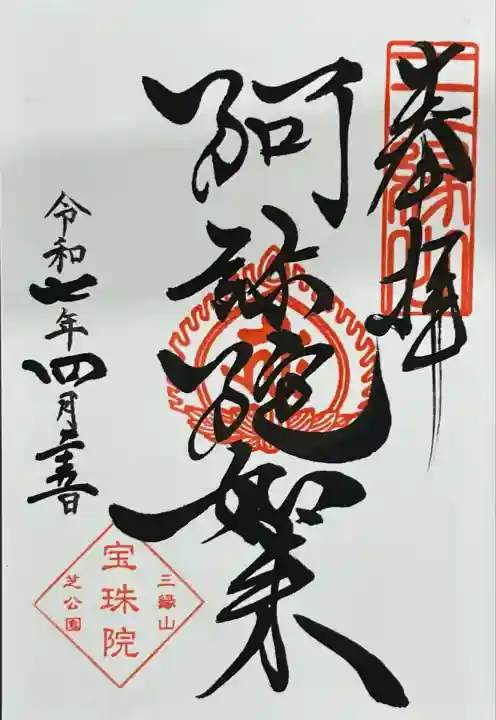 奉拝
三縁山
阿弥陀如来
令和七年四月
三縁山
宝珠院
芝公園